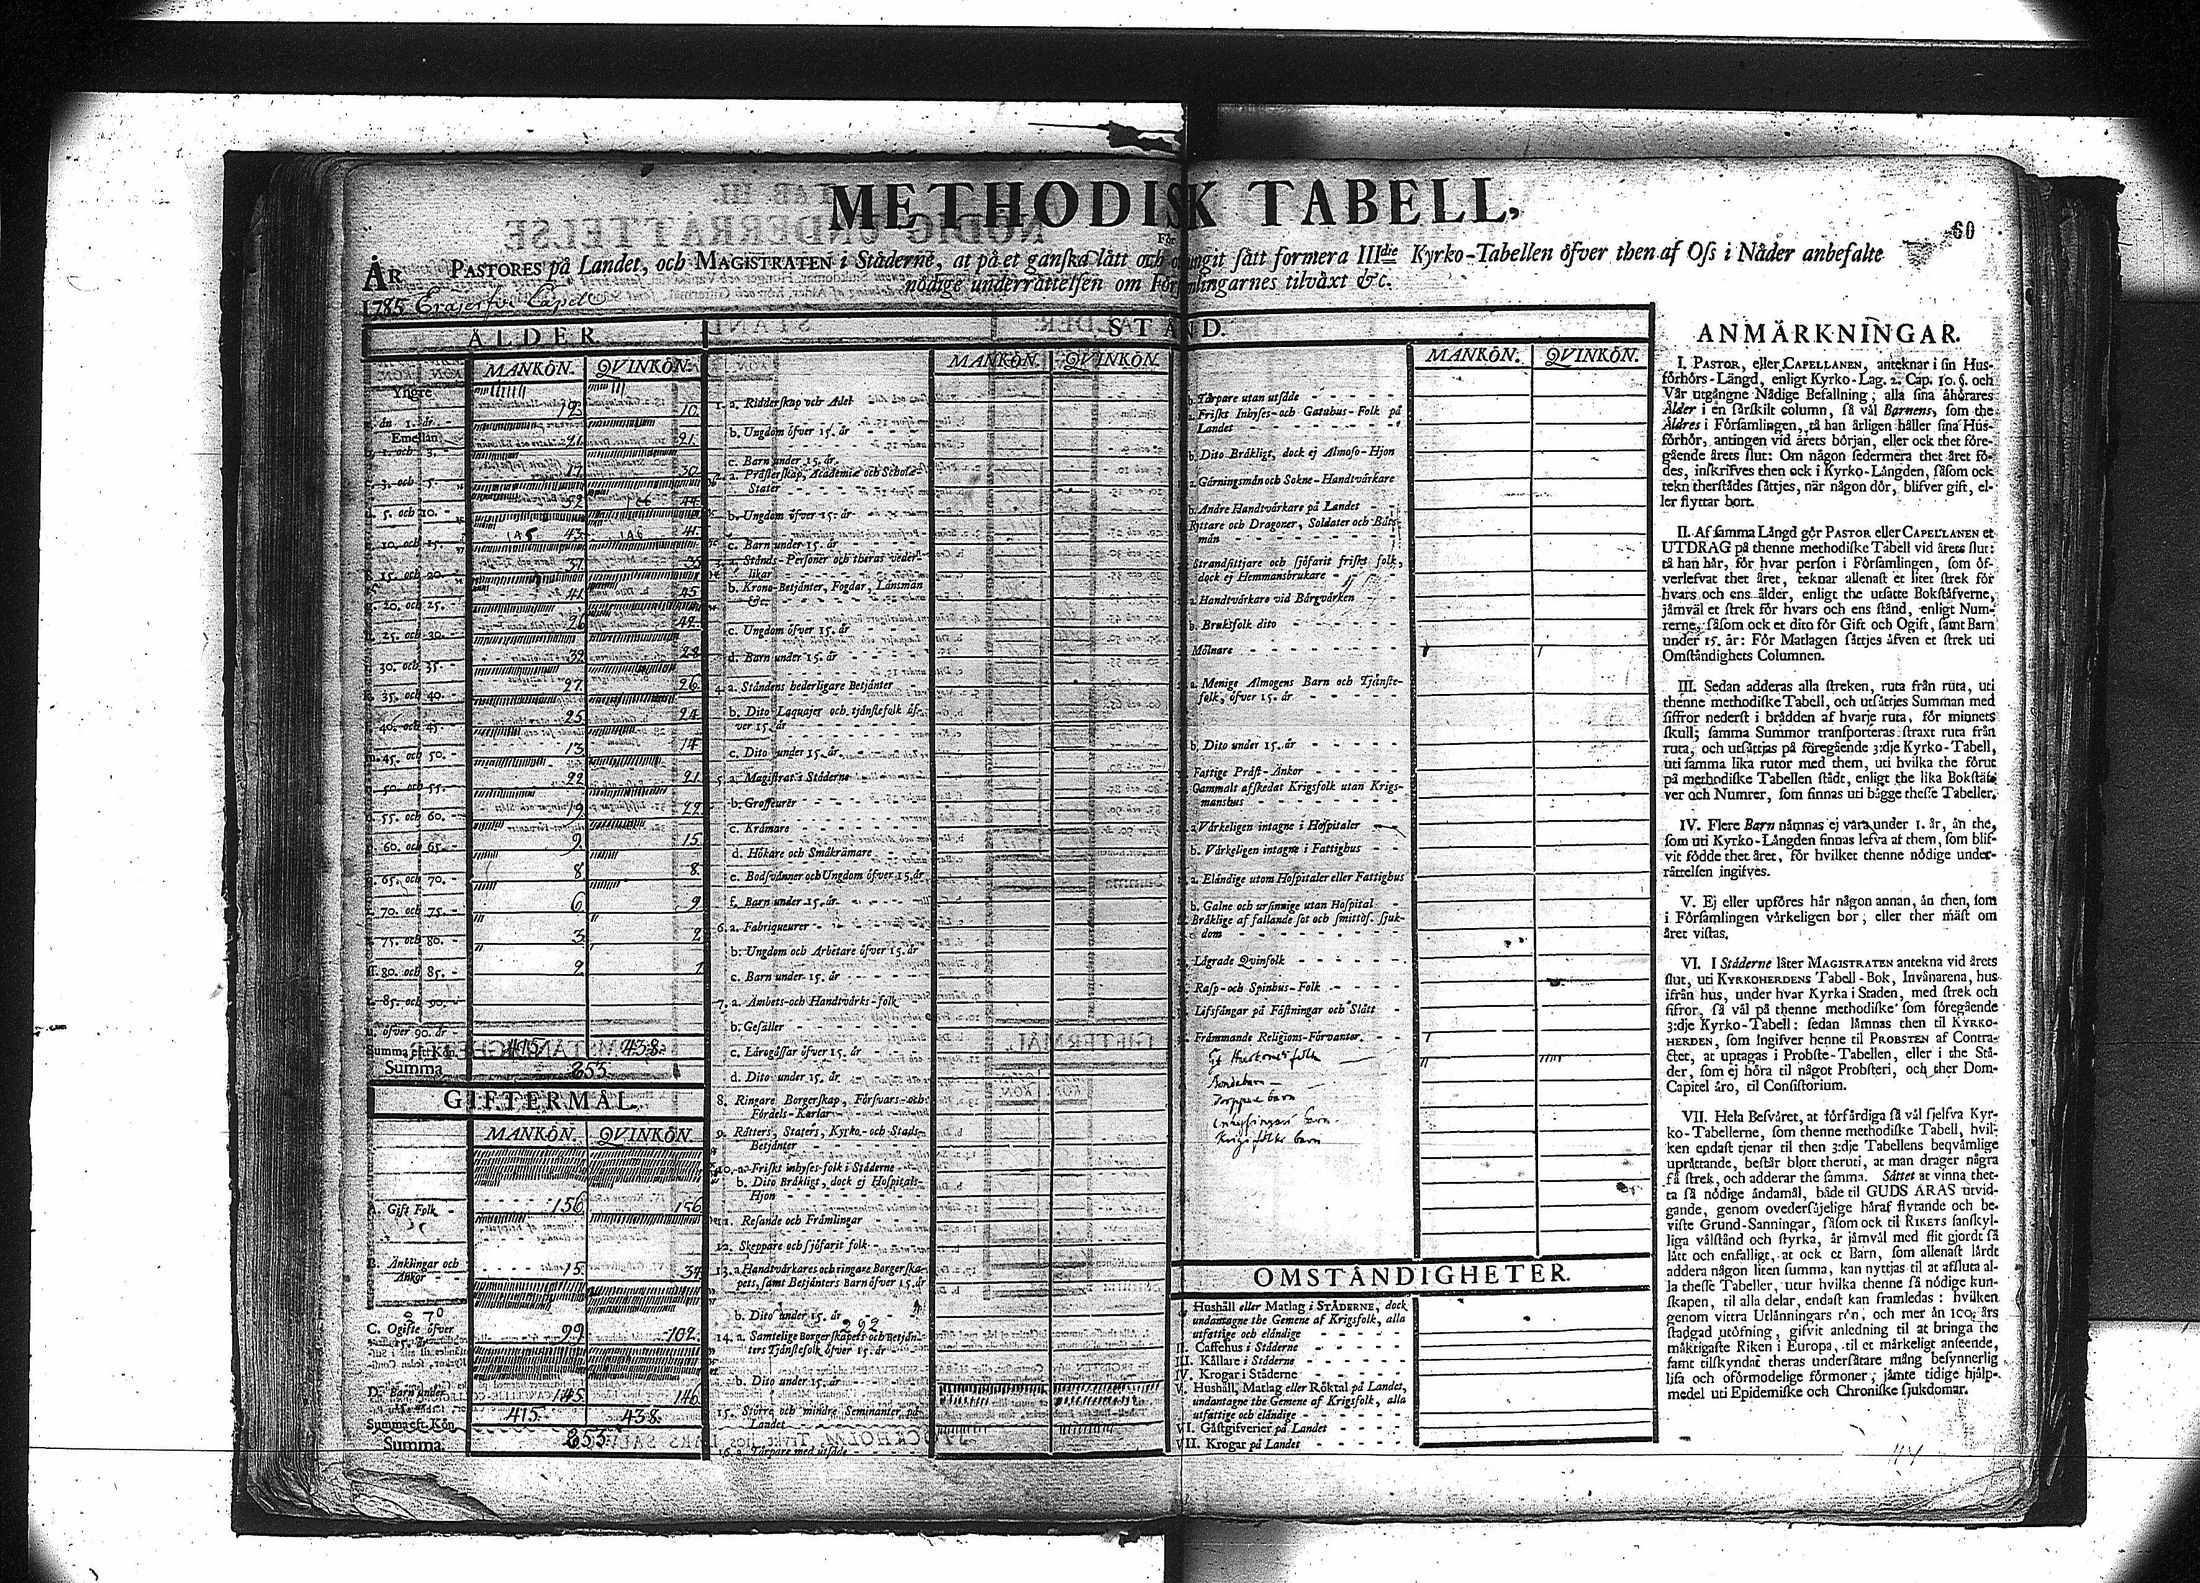 METHODISK TABELL,
60
För
PASTORES på Landet, och MAGISTRATEN i Städerne, at på et ganska lätt och ogit sätt formera IIIdie Kyrko-Tabellen öfver then af Oss i Nåder anbefalte
nödige underrättelsen om Församlingarnes tilväxt &c.
ÅR
1785
ÅLDER
MANKÖN. QVINKÖN.
Yngre
än 1. år
12 10
Emellan
1. och 3.
21 21
3. och 5.
17 30
5. och 10.
52 44
10. och 15.
43 41
15. och 20.
37 35
20. och 25.
41 45
25. och 30.
26 42
30. och 35.
39 28
35. och 40.
27 26
40. och 45.
25 24
45. och 50.
13 14
50. och 55.
22 21
55. och 60.
19 22
60. och 65.
9 15
65. och 70.
8 8
70. och 75.
6 9
75. och 80.
3 2
80. och 85.
2 1
85. och 90.
öfver 90. år
Summa eft. Kön. 415 438
Summa 853
GIFTERMÅL
MANKÖN. QVINKÖN.
A. Gift Folk 156 156
B. Änklingar och
Änkor 15 34
C. Ogifte öfver
15. år 99 102
D. Barn under 145 146
Summa eft. Kön. 415 438
Summa. 853
STÅND.
MANKÖN. QVINKÖN.
1. a. Ridderskap och Adel
b. Ungdom öfver 15. år
c. Barn under 15. år
2. a. Prästerskap, Academiæ och Scholæ-
Stater
b. Ungdom öfver 15. år
c. Barn under 15. år
3. a. Stånds-Personer och theras vederlikar
b. Krono-Betjänter, Fogdar, Länsmän
&c.
c. Ungdom öfver 15. år
d. Barn under 15. år
4. a. Ståndens hederligare Betjänter
b. Dito Laquajer och tjänstefolk öfver 15. år
c. Dito under 15. år
5. a. Magistrat i Städerne
b. Grosseurer
c. Krämare
d. Hökare och Småkrämare
e. Bodsvänner och Ungdom öfver 15. år
f. Barn under 15. år
6. a. Fabriqueurer
b. Ungdom och Arbetare öfver 15. år
c. Barn under 15. år
7. a. Ämbets- och Handtvärks-folk
b. Gesäller
c. Lärogåssar öfver 15. år
d. Dito under 15. år
8. Ringare Borgerskap, Försvars- och
Fördels-Karlar
9. Rätters, Staters, Kyrko- och Stads-
Betjänter
10. a. Friskt inhyses-folk i Städerne
b. Dito Bräkligt, dock ej Hospitals-
Hjon
11. Resande och Främlingar
12. Skeppare och sjöfarit folk
13. a. Handtvärkares och ringare Borgerska-
pets, samt Betjänters Barn öfver 15. år
b. Dito under 15. år
292
14. a. Samtelige Borgerskapets och Betjän-
ters Tjänstefolk öfver 15. år
b. Dito under 15. år
15. Större och mindre Seminanter på
Landet
16. a. Torpare med utsäde
MANKÖN. QVINKÖN.
b. Torpare utan utsäde
Friskt Inhyses- och Gatuhus-Folk på
Landet
b. Dito Bräkligt, dock ej Almoso-Hjon
a. Gärningsmän och Sokne-Handtvärkare
b. Andre Handtvärkare på Landet
Ryttare och Dragoner, Soldater och Båtsmän
Strandsittjare och sjöfarit friskt folk,
dock ej Hemmansbrukare
a. Handtvärkare vid Bärgvärken
b. Bruksfolk dito
Mölnare
a. Menige Almogens Barn och Tjänste-
folk, öfver 15. år
b. Dito under 15. år
Fattige Präst-Änkor
Gammalt afskedat Krigsfolk utan Krigs-
manshus
a. Värkeligen intagne i Hospitaler
b. Värkeligen intagne i Fattighus
a. Eländige utom Hospitaler eller Fattighus
b. Galne och ursinnige utan Hospital
Bräklige af fallande sot och smittos. sjuk-
dom
Lägrade Qvinfolk
Rasp- och Spinhus-Folk
Lifsfångar på Fästningar och Slått
Främmande Religions-Förvanter
OMSTÄNDIGHETER.
Hushåll eller Matlag i STÄDERNE, dock
undantagne the Gemene af Krigsfolk, alla
utfattige och eländige
II. Caffehus i Städerne
III. Källare i Städerne
IV. Krogar i Städerne
V. Hushåll, Matlag eller Röktal på Landet,
undantagne the Gemene af Krigsfolk, alla
utfattige och eländige
VI. Gästgifverier på Landet
VII. Krogar på Landet
ANMÄRKNINGAR.
I. PASTOR, eller CAPELLANEN, anteknar i sin Hus-
förhörs-Längd, enligt Kyrko-Lag. 2. Cap. 10. §. och
Vår utgångne Nådige Befallning; alla sina åhörares
Ålder i en särskilt column, så väl Barnens, som the
Äldres i Församlingen, tå han årligen håller sina Hus-
förhör, antingen vid årets början, eller ock thet före-
gående årets slut: Om någon sedermera thet året fö-
des, inskrifves then ock i Kyrko-Längden, såsom ock
tekn therstädes sättjes, när någon dör, blifver gift, el-
ler flyttar bort.
II. Af samma Längd gör PASTOR eller CAPELLANEN et
UTDRAG på thenne methodiske Tabell vid årets slut:
tå han här, för hvar person i Församlingen, som öf-
verlefvat thet året, teknar allenast et litet strek för
hvars och ens ålder, enligt the utsatte Bokstäfverne,
jämväl et strek för hvars och ens stånd, enligt Num-
rerne, såsom ock et dito för Gift och Ogift, samt Barn
under 15. år: För Matlagen sättjes äfven et strek uti
Omständighets Columnen.
III. Sedan adderas alla streken, ruta från ruta, uti
thenne methodiske Tabell, och utsättjes Summan med
siffror nederst i brädden af hvarje ruta, för minnets
skull; samma Summor transporteras straxt ruta från
ruta, och utsättjas på föregående 3:dje Kyrko-Tabell,
uti samma lika rutor med them, uti hvilka the förut
på methodiske Tabellen stådt, enligt the lika Bokstäf-
ver och Numrer, som finnas uti bägge thesse Tabeller.
IV. Flere Barn nämnas ej vara under 1. år, än the,
som uti Kyrko-Längden finnas lefva af them, som blif-
vit födde thet året, för hvilket thenne nödige under-
rättelsen ingifves.
V. Ej eller upföres här någon annan, än then, som
i Församlingen värkeligen bor; eller ther mäst om
året vistas.
VI. I Städerne låter MAGISTRATEN antekna vid årets
slut, uti KYRKOHERDENS Tabell-Bok, Invånarena, hus
ifrån hus, under hvar Kyrka i Staden, med strek och
siffror, så väl på thenne methodiske som föregående
3:dje Kyrko-Tabell: sedan lämnas then til KYRKO-
HERDEN, som ingifver henne til PROBSTEN af Contra-
ctet, at uptagas i Probste-Tabellen, eller i the Stä-
der, som ej höra til något Probsteri, och ther Dom-
Capitel äro, til Consistorium.
VII. Hela Besväret, at förfärdiga så väl sjelfva Kyr-
ko-Tabellerne, som thenne methodiske Tabell, hvil-
ken endast tjenar til then 3:dje Tabellens beqvämlige
uprättande, består blott theruti, at man drager några
få strek, och adderar the samma. Sättet at vinna thet-
ta så nödige ändamål, både til GUDS ÄRAS utvid-
gande, genom ovedersäjelige häraf flytande och be-
viste Grund-Sanningar, såsom ock til RIKETS sanskyl-
liga välstånd och styrka, är jämväl med flit gjordt så
lätt och enfalligt, at ock et Barn, som allenast lärdt
addera någon liten summa, kan nyttjas til at afsluta al-
la thesse Tabeller, utur hvilka thenne så nödige kun-
skapen, til alla delar, endast kan framledas: hvilken
genom vittra Utlänningars rön, och mer än 100. års
stadgad utöfning, gifvit anledning til at bringa the
mäktigaste Riken i Europa, til et märkeligt anseende,
samt tilskyndat theras undersåtare mång besynnerlig
lisa och oförmodelige förmoner; jämte tidige hjälp-
medel uti Epidemiske och Chroniske sjukdomar.